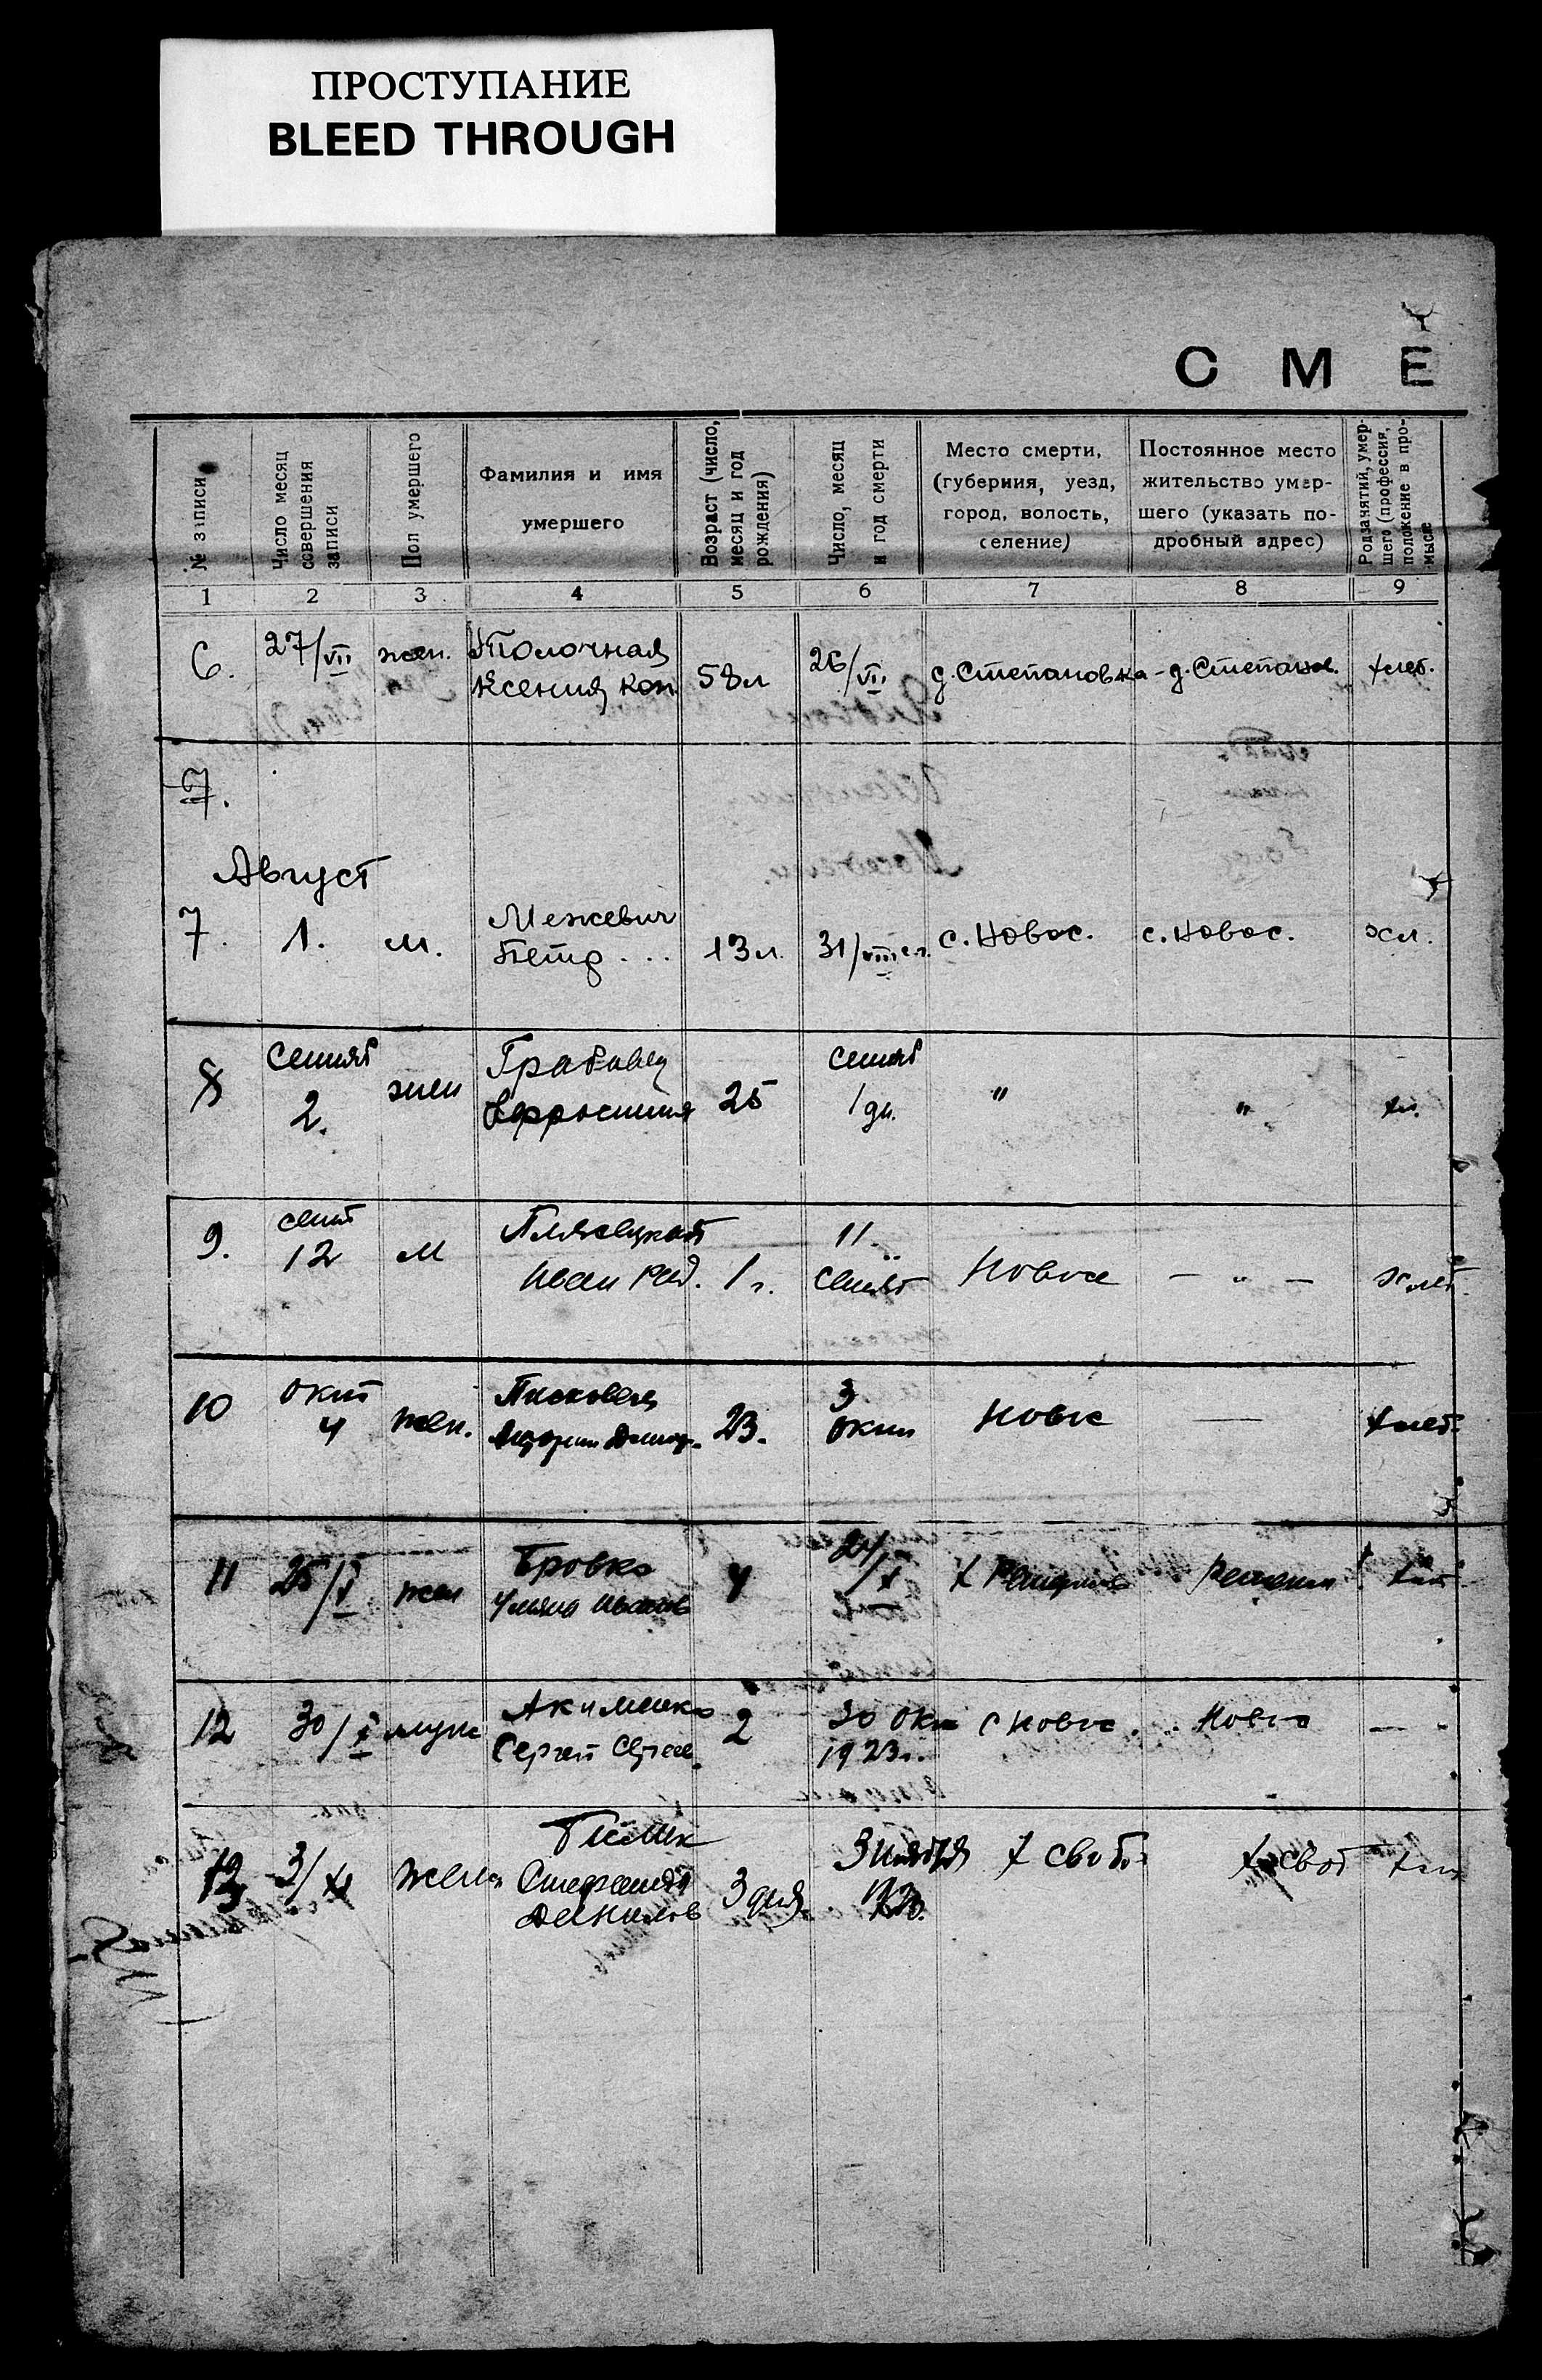 ПРОСТУПАНИЕ
BLEED THROUGH
С М Е
№ записи
Число месяц совершения записи
Пол умершего
Фамилия и имя умершего
Возраст (число, месяц и год рождения)
Число, месяц и год смерти
Место смерти, (губерния, уезд, город, волость, селение)
Постоянное место жительство умершего (указать подробный адрес)
Род занятий, умершего (профессия, положение в промысле
1 2 3 4 5 6 7 8 9
6. 27/VII жен. Толочная 26/VII д. Степановка - д. Степанов. хлеб.
Ксения Кон. 58 л
7.
Август
7. 1. м. Межевич 13 л. 31/VIII с. Новос. с. Новос. хл.
Петр ...
8 Сентяб жен Грабовец 25 Сентяб " " хл.
2. Ефросиния 1 дн.
9. сент м 11
12 Иван 1 г. Сентяб Новос — " — хлеб.
10 окт жен. 23. 3 Новос — хлеб.
4 окт
11 25/X жен Бровко 4 24/X х
Ульяна Иванов
12 30/X муж Акименко 2 30 Окт с Новос. Новос — "
Сергей Сергее. 1923 г.
13 3/XI жен Стефанида 3 дня. 3 ноября х Своб. х Своб
Данилов